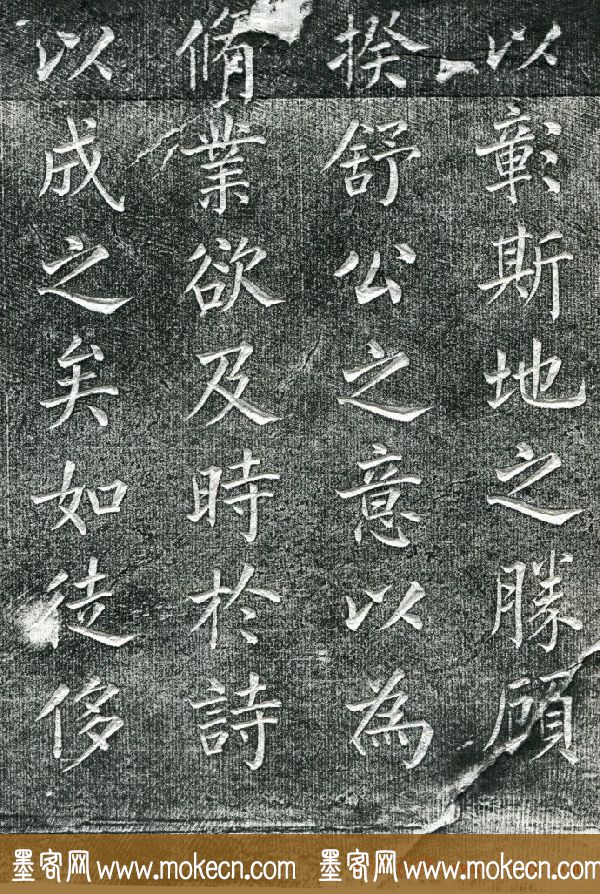 以彰斯地之勝顧
揆舒公之意以為
脩業欲及時於詩
以成之矣如徒侈
墨客网 www.mokecn.com 墨客网 www.mokecn.com